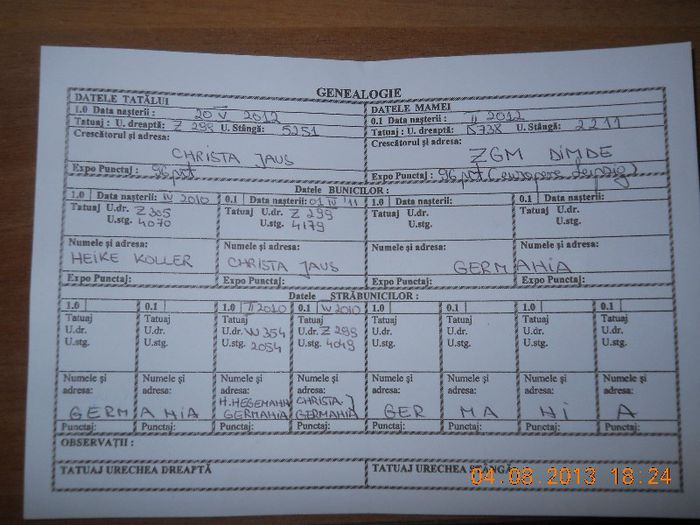 GENEALOGIE
DATELE TATĂLUI
1.0 Data nașterii : 20 V 2012
Tatuaj : U. dreaptă: Z 299 U. Stângă: 5251
Crescătorul și adresa:
CHRISTA JAUS
Expo Punctaj : 96 pct
DATELE MAMEI
0.1 Data nașterii : II 2012
Tatuaj : U. dreaptă: D738 U. Stângă: 2211
Crescătorul și adresa:
ZGM DIMDE
Expo Punctaj : 96 pct (europene leipzig)
Datele BUNICILOR :
1.0 Data nașterii: IV 2010
Tatuaj U.dr. Z 305
U.stg. 4070
Numele și adresa:
HEIKE KOLLER
Expo Punctaj:
0.1 Data nașterii: 01 IV '11
Tatuaj U.dr. Z 299
U.stg. 4179
Numele și adresa:
CHRISTA JAUS
Expo Punctaj:
1.0 Data nașterii:
Tatuaj U.dr.
U.stg.
Numele și adresa:
0.1 Data nașterii:
Tatuaj U.dr.
U.stg.
Numele și adresa:
GERMANIA
Expo Punctaj:
Expo Punctaj:
Datele STRĂBUNICILOR :
1.0 0.1 1.0 II 2010 0.1 IV 2010 1.0 0.1 1.0 0.1
Tatuaj Tatuaj Tatuaj Tatuaj Tatuaj Tatuaj Tatuaj Tatuaj
U.dr. U.dr. U.dr. W 354 U.dr. Z 299 U.dr. U.dr. U.dr. U.dr.
U.stg. U.stg. 2054 U.stg. 4049 U.stg. U.stg. U.stg. U.stg.
Numele și Numele și Numele și Numele și Numele și Numele și Numele și Numele și
adresa: adresa: adresa: adresa: adresa: adresa: adresa: adresa:
H.HEGEMANN CHRISTA J
GERMANIA GERMANIA GERMANIA GER MA NI A
Punctaj: Punctaj: Punctaj: Punctaj: Punctaj: Punctaj: Punctaj: Punctaj:
OBSERVAȚII :
TATUAJ URECHEA DREAPTĂ
TATUAJ URECHEA STÂNGĂ
04.08.2013 18:24